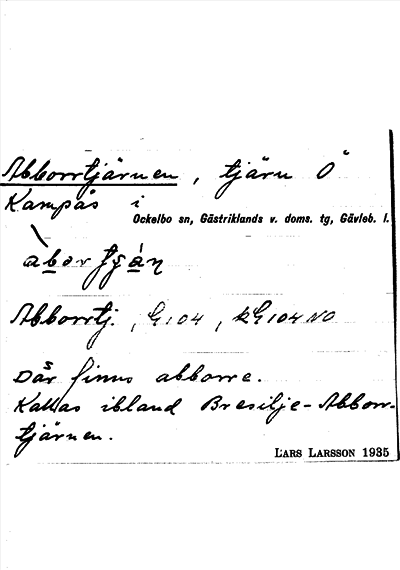 Abborrtjärnen, tjärn Ö
Kampås i
Ockelbo sn, Gästriklands v. doms. tg, Gävleb. l.
Abborrtj., G104, kG104NO
Där finns abborre.
Kallas ibland Bresilje-Abborr-
tjärnen.
LARS LARSSON 1935